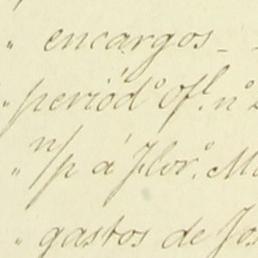 " encargos_
" periód.º Of.l n.º 2
" n/p á Flor.º M
" gastos de Jos